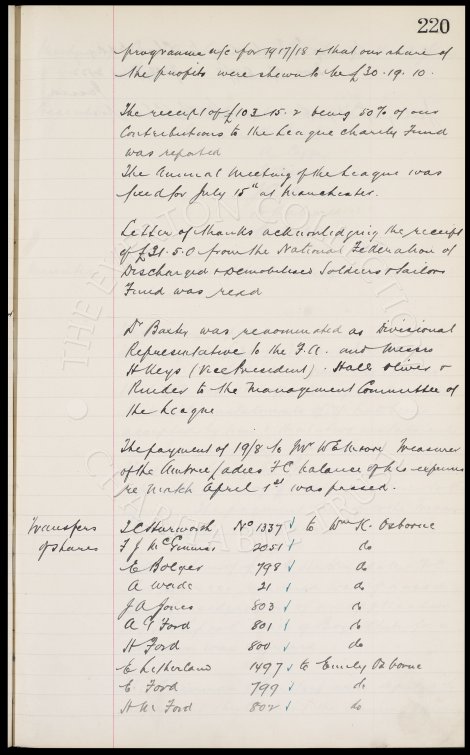 220
programme a/c for 1917/18 & that our share of
the profits were shewn to be £30.19.10.
The receipt of £103.15.2 being 50% of our
Contributions to the League charity Fund
was reported
The Annual Meeting of the League was
fixed for July 15th at Manchester.
Letter of thanks acknowledging the receipt
of £21.5.0 from the National Federation of
Discharged & Demobilised Soldiers & Sailors
Fund was read
Dr Baxter was renominated as Divisional
Representative to the F.A. and Messrs
H Keys (Vice President). Hall Oliver &
Rinder to the Management Committee of
the League
The payment of 19/8 to Mr W E Moore Treasurer
of the Aintree Ladies FC balance of his expenses
re Match April 1st was passed.
Transfers of shares
Harworth No 1337 to Wm K. Osborne
F J McGuinness 2051 do
E Bolger 798 do
A Wade 21 do
J A Jones 803 do
A G Ford 801 do
H Ford 800 do
E Litherland 1497 to Emily Osborne
E Ford 799 do
H M Ford 802 do
THE EVERTON COLLECTION
CHARITABLE TRUST